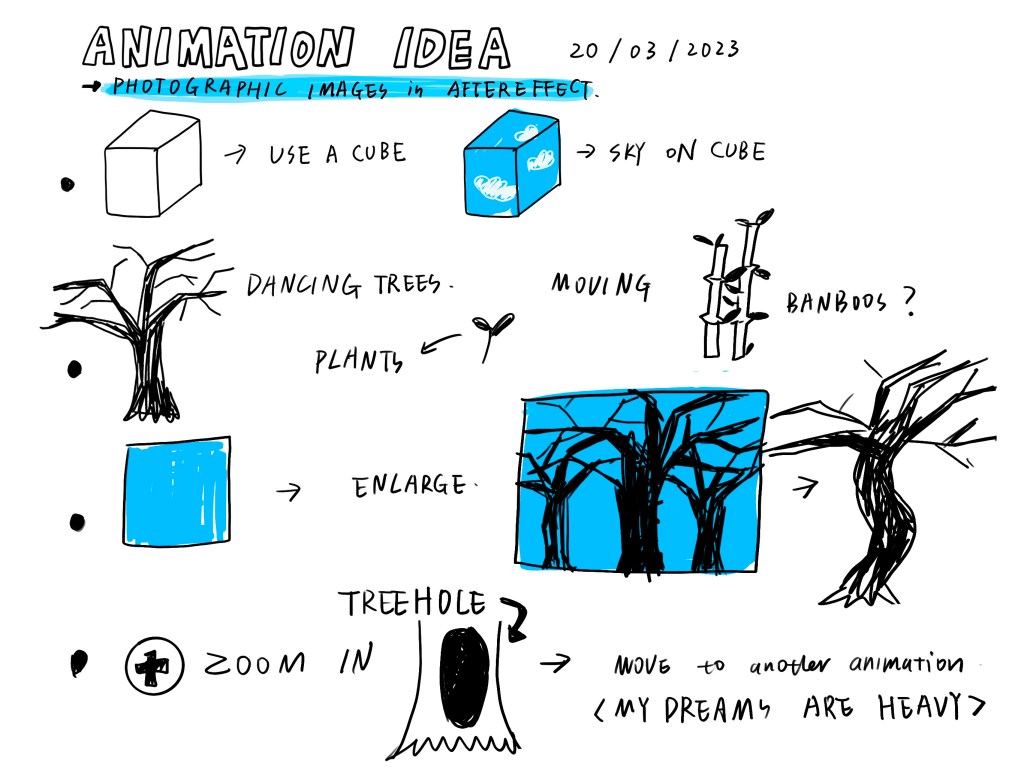 ANIMATION IDEA 20/03/2023
→ PHOTOGRAPHIC IMAGES in AFTEREFFECT.
→ USE A CUBE
→ SKY ON CUBE
DANCING TREES.
MOVING
BANBOOS?
PLANTS
→ ENLARGE.
TREEHOLE
ZOOM IN
→ MOVE to another animation
<MY DREAMS ARE HEAVY>